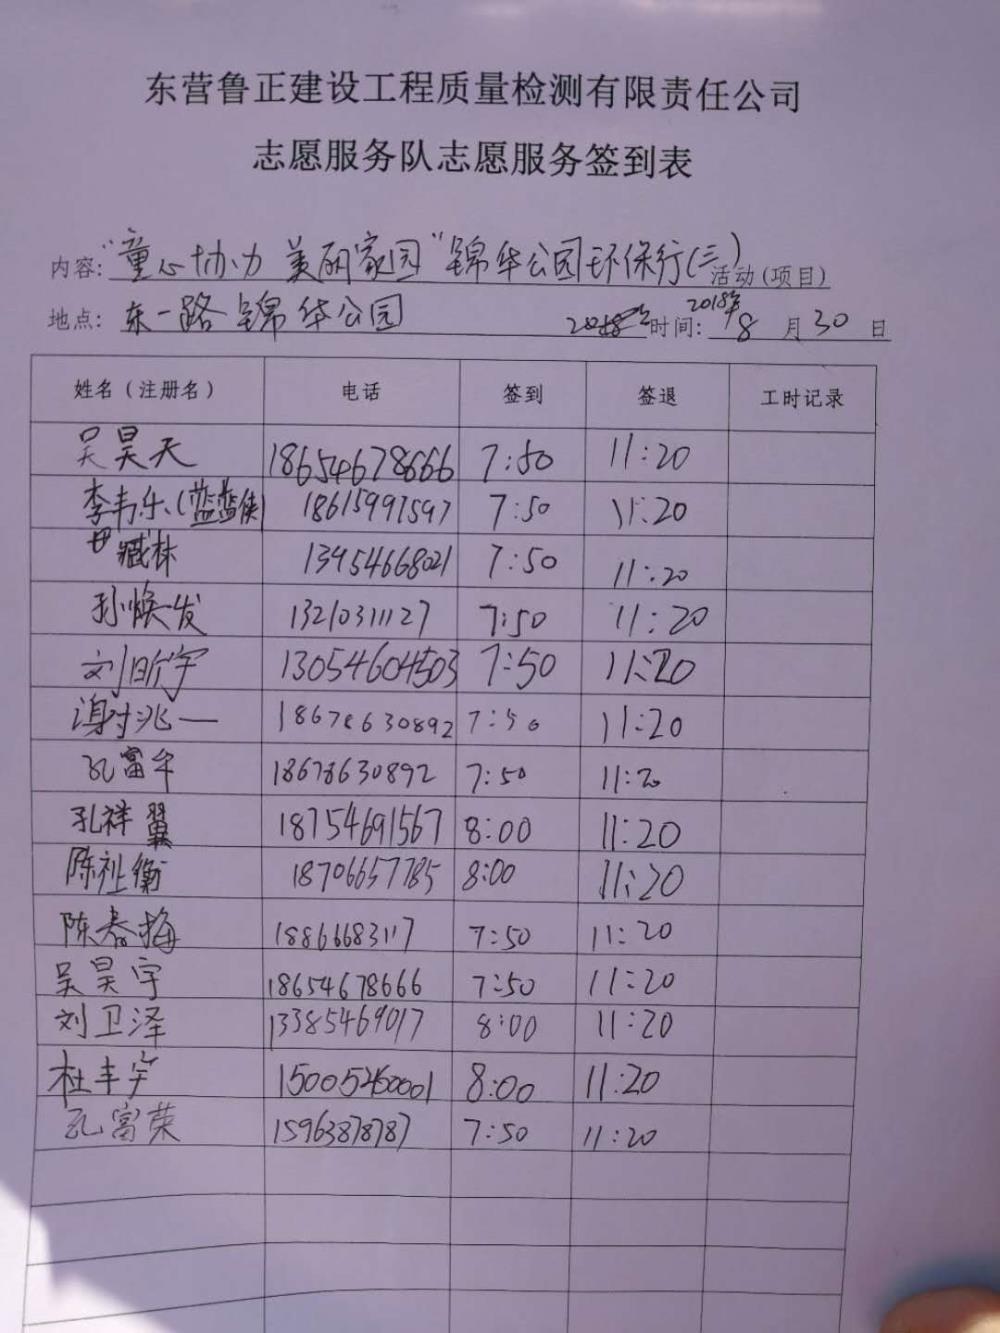 东营鲁正建设工程质量检测有限责任公司
志愿服务队志愿服务签到表
内容: "童心协力 美丽家园"锦华公园环保行(三) 活动(项目)
地点: 东一路锦华公园 时间: 2018年 8 月 30 日
姓名(注册名) 电话 签到 签退 工时记录
吴昊天 18654678666 7:50 11:20
李韦乐(蓝蓝侠) 18615991597 7:50 11:20
臧林 13954668021 7:50 11:20
孙焕发 13210311127 7:50 11:20
刘昕宇 13054604503 7:50 11:20
谢兆一 18678630892 7:50 11:20
孔富华 18678630892 7:50 11:20
孔祥翼 18754691567 8:00 11:20
陈祉衡 18706657785 8:00 11:20
陈春梅 18866683117 7:50 11:20
吴昊宇 18654678666 7:50 11:20
刘卫泽 13385469017 8:00 11:20
杜丰宇 15005260001 8:00 11:20
孔富荣 15963878787 7:50 11:20